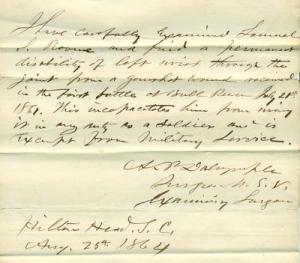 I have carefully Examined Samuel
S. and find a permanent
disability of left wrist through the
joint from a gunshot wound received
in the first battle at Bull Run July 21st
1861. This incapacitates him from using
it in any duty as a soldier and is
Exempt from Military Service.
A. P. Dalrymple
Surgeon U.S.V.
Examining Surgeon
Hilton Head, S.C.
Aug. 25th 1864